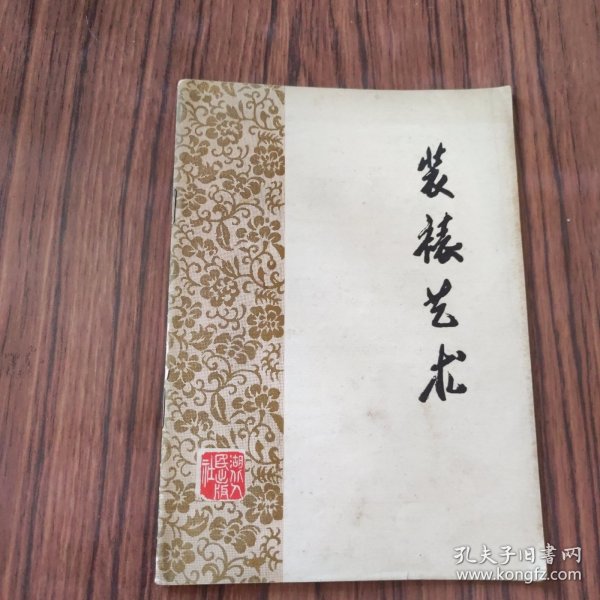 装裱艺术
湖北人
民出版
社
孔夫子旧書网
www.kongfz.com